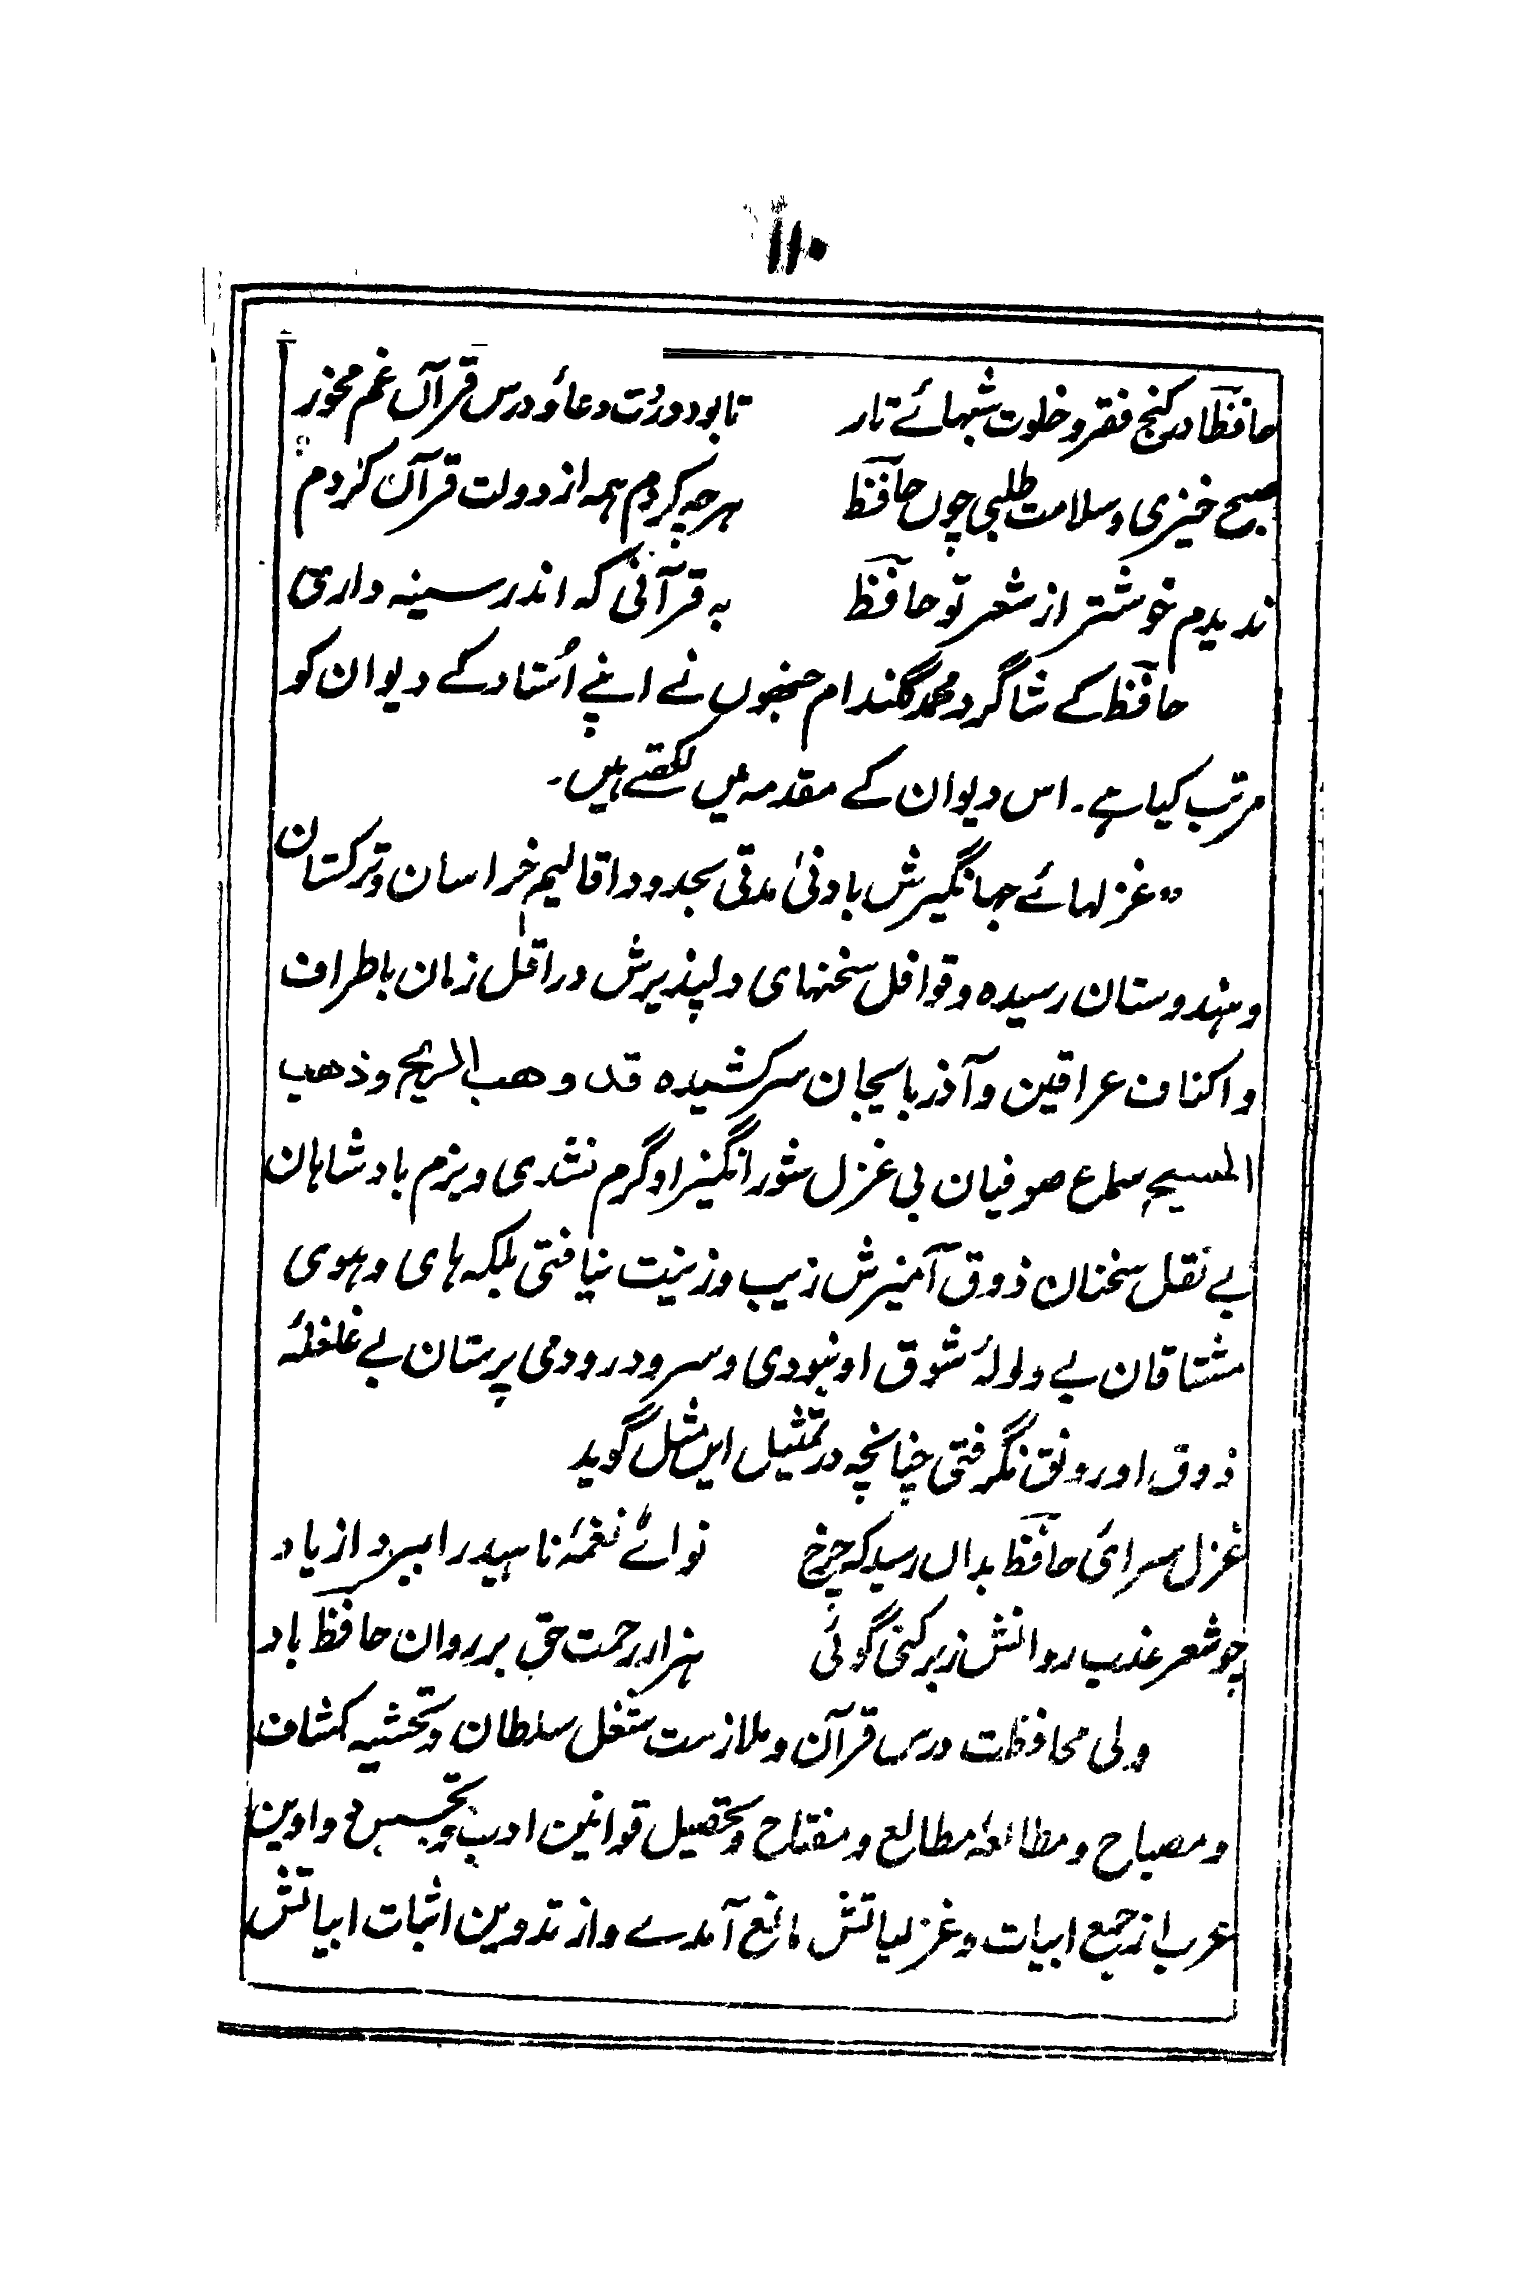 ۱۱۰
حافظا در کنج فقر و خلوت شبہائے تار تا بود وردت دعا و درس قرآں غم مخور
صبح خیزی و سلامت طلبی چوں حافظ ہرچہ کردم ہمہ از دولت قرآن کردم
ندیدم خوشتر از شعر تو حافظ بہ قرآنی کہ اندر سینہ داری
حافظ کے شاگرد محمد گلندام جنھوں نے اپنے اُستاد کے دیوان کو
مرتب کیا ہے۔ اس دیوان کے مقدمہ میں لکھتے ہیں۔
"غزلہائے جہانگیرش بادنیٰ مدتی بحدود اقالیم خراسان و ترکستان
و ہندوستان رسیدہ و قوافل سخنہای دلپذیرش در اقل زمان باطراف
و اکناف عراقین و آذربایجان سرکشیدہ قد وهب الریح و ذهب
المسیح سماع صوفیان بی غزل شور انگیز او گرم نشدی و بزم بادشاہان
بے نقل سخنان ذوق آمیزش زیب و زینت نیافتی بلکہ ہای و ہوی
مشتاقان بے ولولۂ شوق او نبودی و سرود رود می پرستان بے غلغلۂ
ذوق او رونق نگرفتی چنانچہ در تمثیل ایں مثل گوید
غزل سرائی حافظ بداں رسید کہ چرخ نوائے نغمۂ ناہید را ببرد از یاد
چو شعر عذب روانش زبر کنی گوئی ہزار رحمت حق بر روان حافظ باد
ولی محافظت درس قرآن و ملازمت شغل سلطان و تحشیہ کشاف
و مصباح و مطالعۂ مطالع و مفتاح و تحصیل قوانین ادب و تجسس دواوین
عرب از جمع ابیات و غزلیاتش مانع آمدے و از تدوین اثبات ابیاتش